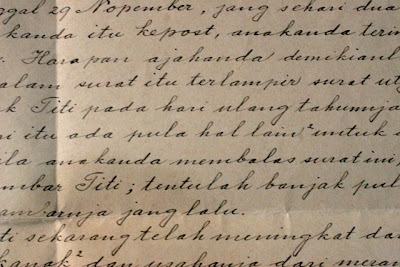 ggal 29 Nopember, jang sehari dua
kanda itu kepost, anakanda terim
. Harapan ajahanda demikianl
alam surat itu terlampir surat utj
k Titi pada hari ulang tahunnja
ni itu ada pula hal lain² untuk
ila anakanda membalas surat ini,
mbar Titi; tentulah banjak pul
ambarnja jang lalu.
ti sekarang telah meningkat dar
kanak² dan usahanja dari meran